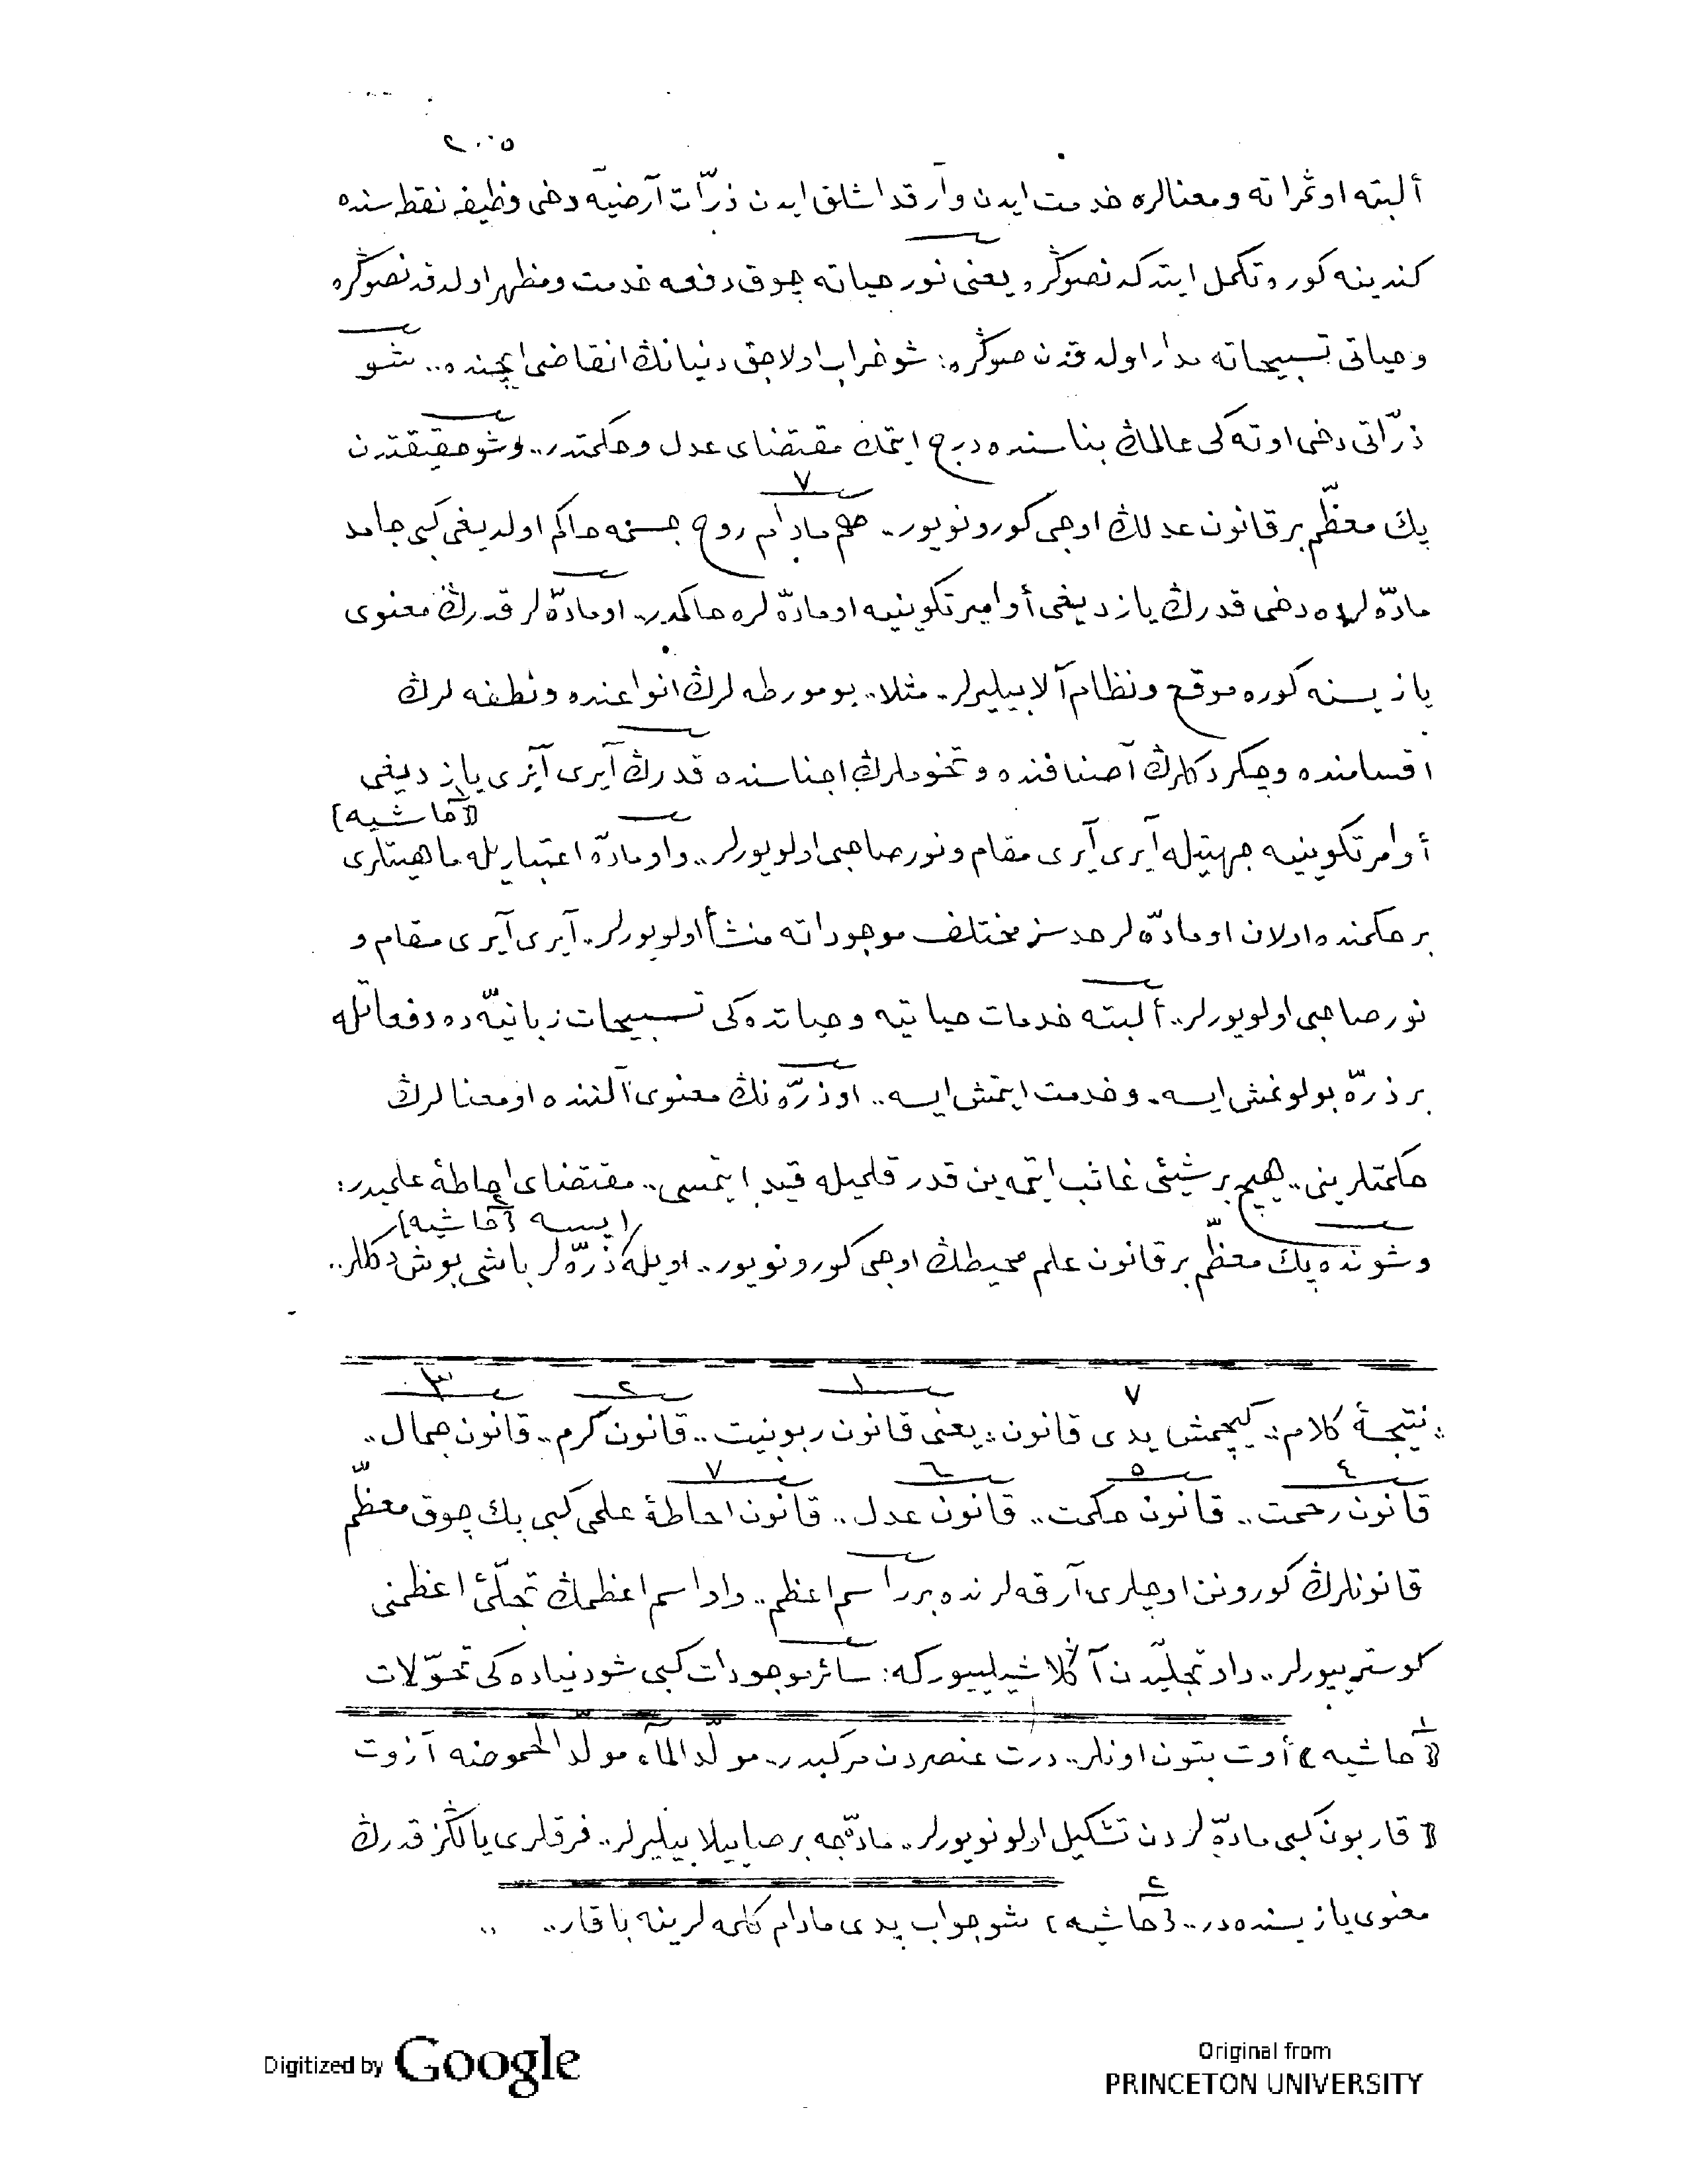 ٢٠٠٥
ألبته او ثمراته و معنالره خدمت ايدن و آرقداشلق ايدن ذرّات آرضيّه دخى وظيفه نقطه سنده
كندينه كوره تكمل ايتدكدنصوڭره يعنى نور حياته چوق دفعه خدمت ومظهر اولدقدنصوڭره
و حياتى تسبيحاته مدار اولدقدن صوڭره: شو خراب اولاجق دنيانڭ انقاضى ايچنده.. شو
ذرّاتى دخى اوته كى عالمڭ بناسنده درج ايتمك مقتضاى عدل و حكمتدر.. وشو حقيقتدن
پك معظّم بر قانون عدلڭ اوجى كورونويور.. ٧ هم مادام روح جسمه حاكم اولديغى كبى جامد
مادّه لرده دخى قدرڭ يازديغى أوامر تكوينيه او مادّه لره حاكمدر.. او مادّه لر قدرڭ معنوى
يازيسنه كوره موقع ونظام آلابيليرلر.. مثلا.. يومورطه لرڭ انواعنده ونطفه لرڭ
اقسامنده وچكردكلرڭ آصنافنده و تخوملرڭ اجناسنده قدرڭ آيرى آيرى يازديغى
أوامر تكوينيه جهتيله آيرى آيرى مقام ونور صاحبى اولويورلر.. واو مادّه اعتباريله ماهيتلرى (١ حاشيه)
بر حكمنده اولان او مادّه لر حدسز مختلف موجوداته منشأ اولويورلر.. آيرى آيرى مقام و
نور صاحبى اولويورلر.. ألبته خدمات حياتيه و حياتده كى تسبيحات ربانيّه ده دفعاتله
بر ذرّه بولونمش ايسه.. و خدمت ايتمش ايسه.. او ذرّه نڭ معنوى آلننده او معنالرڭ
حكمتلرينى.. هيچ بر شيئى غائب ايتمه ين قدر قلميله قيد ايتمسى.. مقتضاى احاطۀ علميدر:
وشونده پك معظّم بر قانون علم محيطڭ اوجى كورونويور.. اويله ايسه (٢ حاشيه) ذرّه لر باشى بوش دكللر..
نتيجۀ كلام: كيچمش يدى ٧ قانون: يعنى قانون ربوبيت ١.. قانون كرم ٢.. قانون جمال ٣..
قانون رحمت ٤.. قانون حكمت ٥.. قانون عدل ٦.. قانون احاطۀ علمى ٧ كبى پك چوق معظّم
قانونلرڭ كورونن اوچلرى آرقه لرنده برر اسم اعظم.. واو اسم اعظمڭ تجلّئ اعظمنى
كوستريورلر.. واو تجلّيدن آڭلاشيلييوركه: سائر موجودات كبى شو دنياده كى تحوّلات
(١ حاشيه) أوت بتون اونلر.. درت عنصردن مركبدر.. مولّد المآء مولّد الحموضه آزوت
قاربون كبى مادّه لردن تشكيل اولونويورلر.. مادّةجه بر صاييلابيليرلر.. فرقلرى يالڭز قدرڭ
معنوى يازيسنده در.. (٢ حاشيه) شو جواب يدى مادام كلمه لرينه باقار..
Digitized by Google
Original from
PRINCETON UNIVERSITY